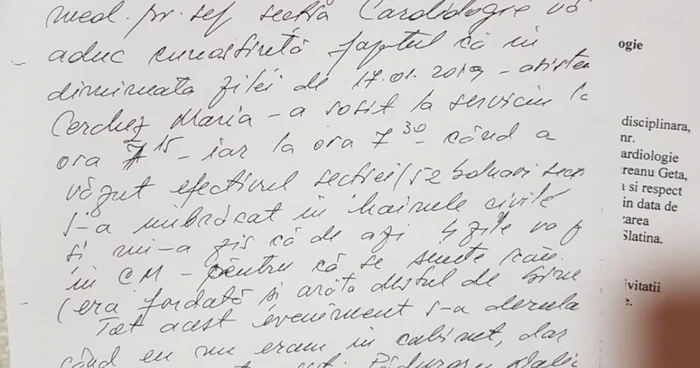 med. pr. șef secția Cardiologie vă
aduc cunoștință faptul că în
dimineața zilei de 17.01.2019 - asisten
Cerchez Maria - a sosit la serviciu la
ora 7 15 - iar la ora 7 30 - când a
văzut efectivul secției (52 bolnavi
s-a îmbrăcat în hainele civile
și mi-a zis că de azi 4 zile va f
în CM - pentru că se simte rău.
(era fardată și arăta destul de bine
Tot acest eveniment s-a derula
când eu nu eram în cabinet, dar
ogie
disciplinara,
nr.
ardiologie
reanu Geta,
i si respect
in data de
zarea
Slatina.
ivitatii
e.